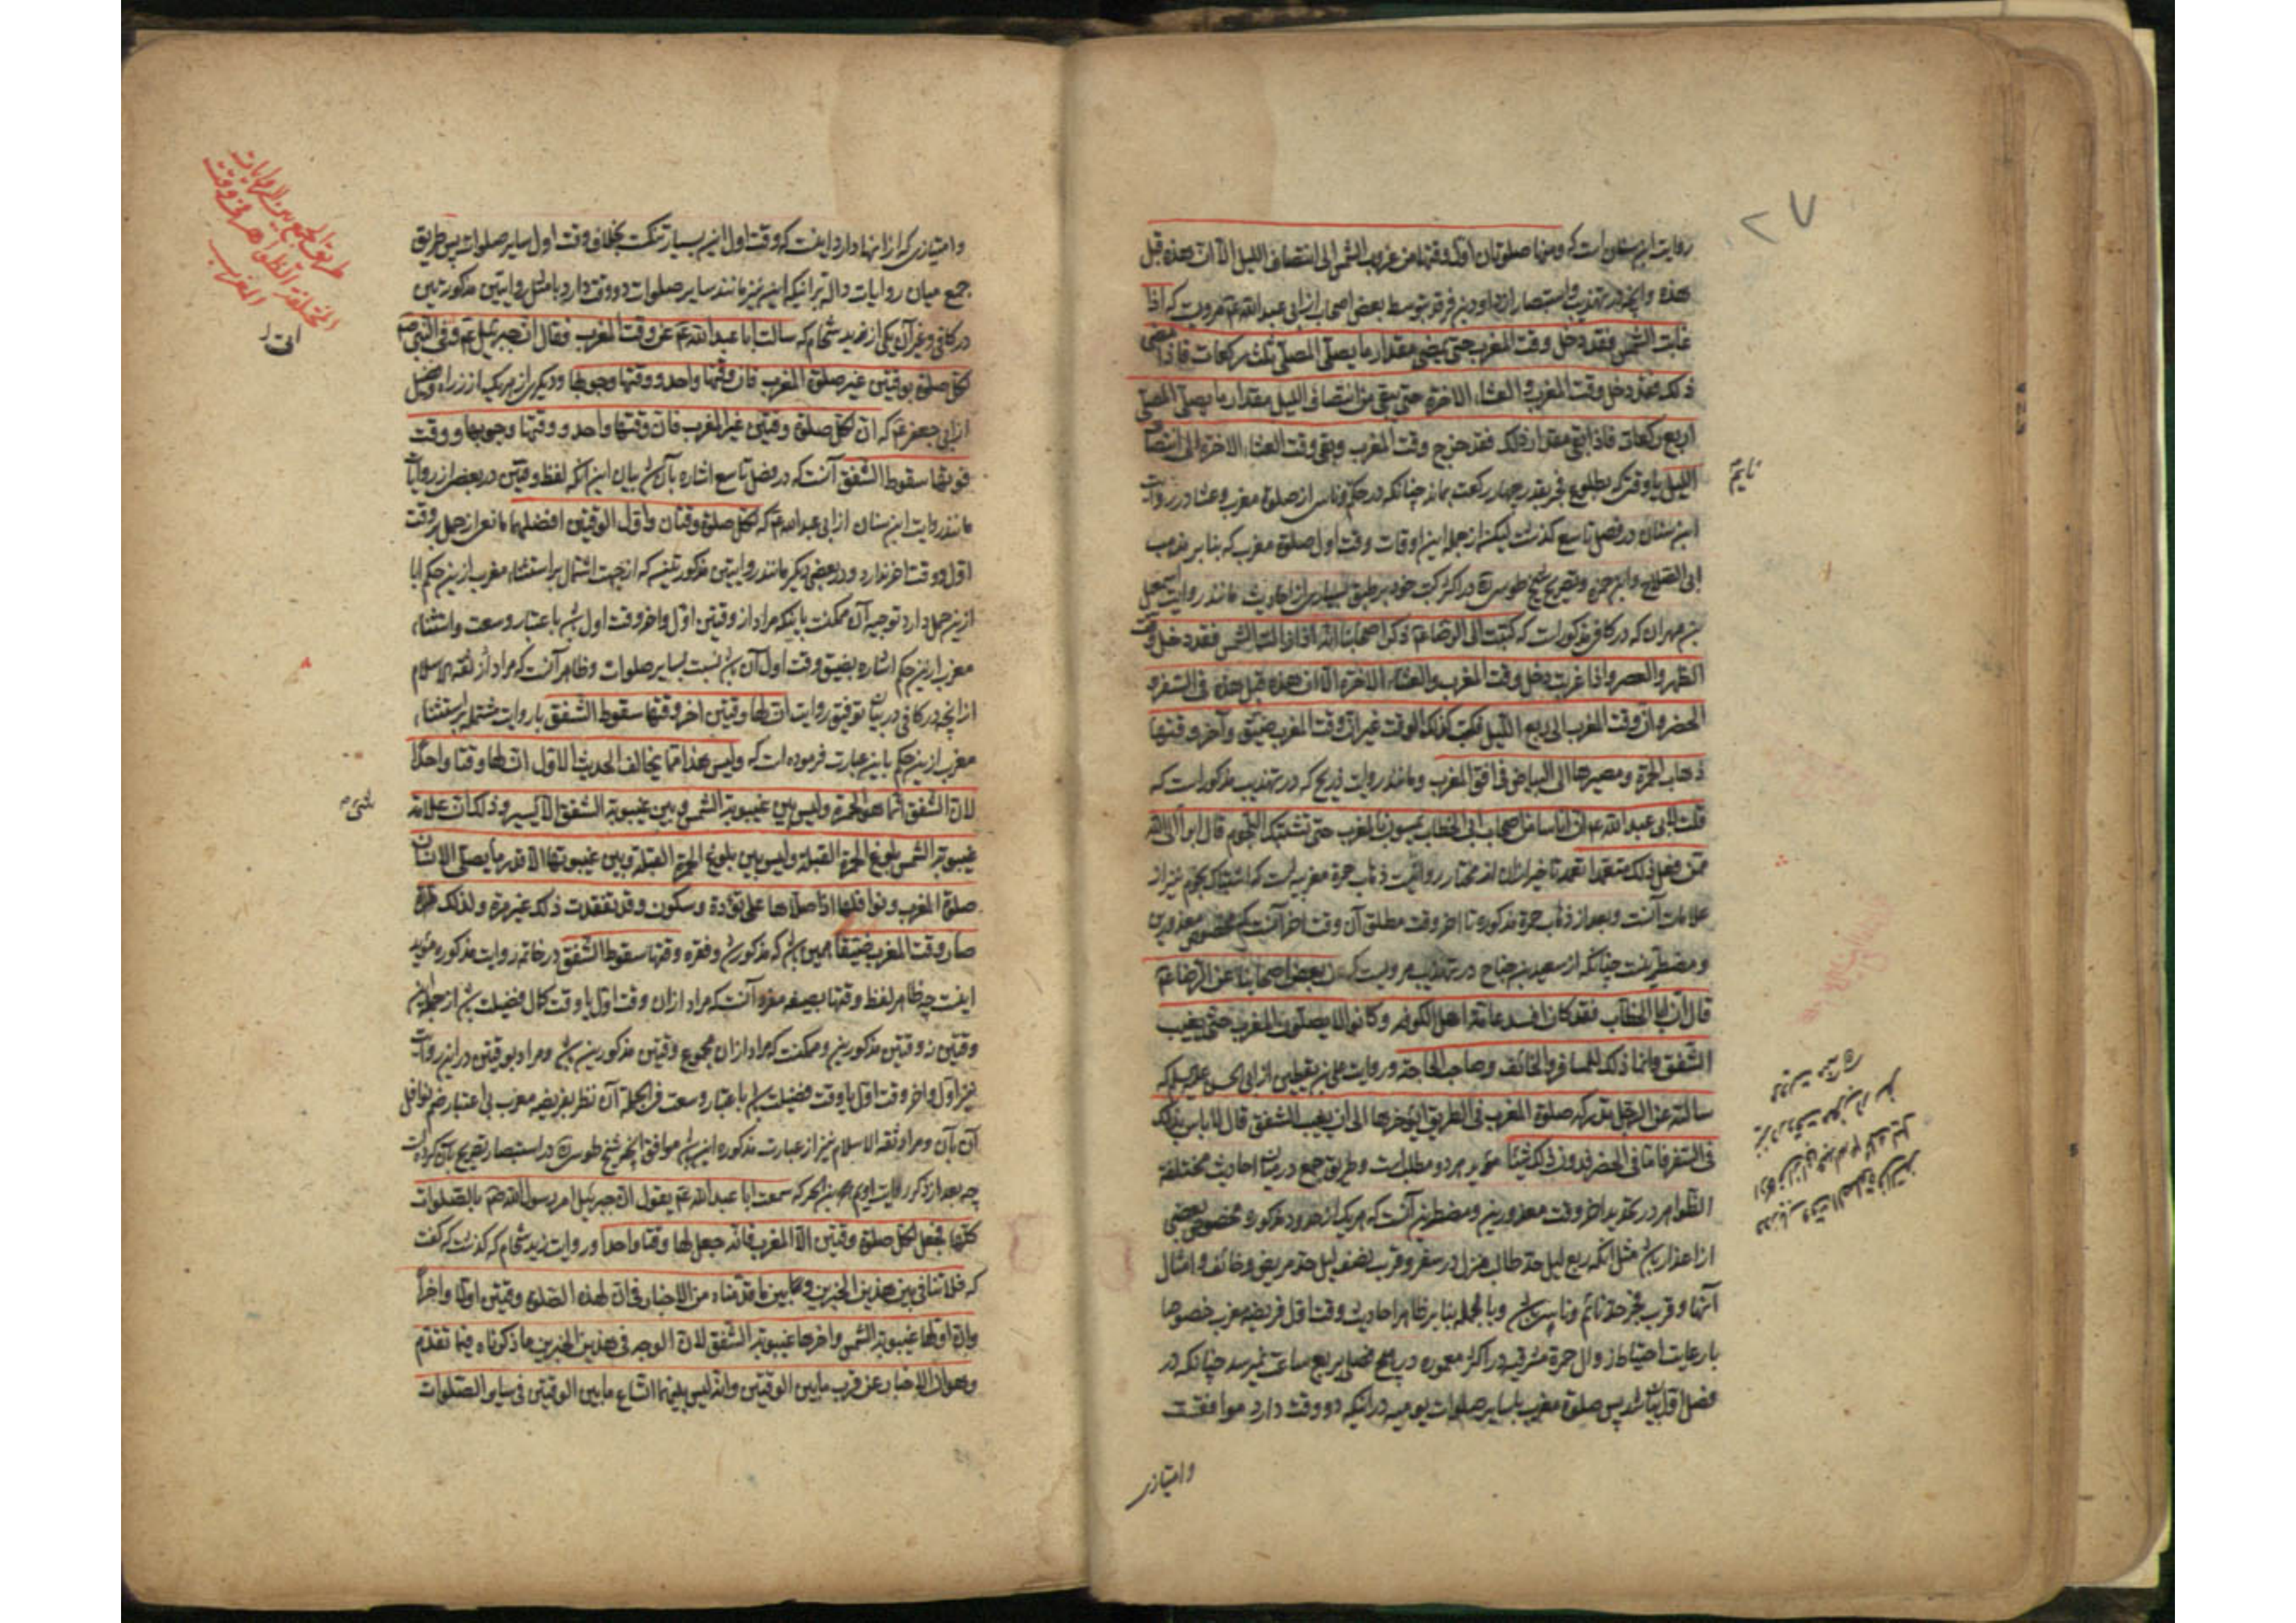 ۲۷
روایت ابن سنان است که ومنها صلوتان اول وقتهما من غروب الشمس الی انتصاف اللیل الا ان هذه قبل
هذه وانچه در تهذیب واستصار از داود بن فرقد بتوسط بعضی اصحاب از ابی عبدالله عم مرویست که اذا
غابت الشمس فقد دخل وقت المغرب حتی یمضی مقدار ما یصلی المصلی ثلث رکعات فاذا مضی
ذلک فقد دخل وقت المغرب والعشاء الاخرة حتی یبقی من انتصاف اللیل مقدار ما یصلی المصلی
اربع رکعات فاذا بقی مقدار ذلک فقد خرج وقت المغرب وبقی وقت العشاء الاخرة الی انتصاف
اللیل یا وقتی که بطلوع فجر بقدر چهار رکعت بماند چنانکه در حکم وناسی از صلوة مغرب وعشا در روایت
ابن سنان در فصل تاسع گذشت لیکن از جمله این اوقات وقت اول صلوة مغرب که بنا بر مذهب
ابی الصلاح وابن حمزه وتصریح شیخ طوسی ره در اکثر کتب خود بر طبق بسیاری از احادیث مانند روایت اسمعیل
بن مهران که در کافی مذکور است که کتبت الی الرضا عم ذکر اصحابنا انه اذا زالت الشمس فقد دخل وقت
الظهر والعصر واذا غربت دخل وقت المغرب والعشاء الاخرة الا ان هذه قبل هذه فی السفر و
الحضر وان وقت المغرب الی ربع اللیل فکتب کذلک الوقت غیر ان وقت المغرب ضیق واخر وقتها
ذهاب الحمرة ومصیرها الی البیاض فی افق المغرب ومانند روایت ذریح که در تهذیب مذکور است که
قلت لابی عبدالله عم ان اناسا من اصحاب ابی الخطاب یمسون بالمغرب حتی تشتبک النجوم قال ابرأ الی الله
ممن فعل ذلک متعمدا
علامات آنست وبعد از ذهاب حمره مذکوره تا اخر وقت مطلق آن وقت اخر آنست که مخصوص معذورین
ومضطرینست چنانکه از سعید بن جناح در تهذیب مرویست که بعض اصحابنا عن الرضا عم
قال ان ابا الخطاب فقد کان افسد عامة اهل الکوفه وکانوا لا یصلون المغرب حتی یغیب
الشفق وانما ذلک للمسافر والخائف وصاحب الحاجة وروایت علی بن یقطین از ابی الحسن علیه السلم که
سالته عن الرجل تدرکه صلوة المغرب فی الطریق ایؤخرها الی ان یغیب الشفق قال لا باس بذلک
فی السفر فاما فی الحضر فدون ذلک شیئا مؤید هر دو مطلب است وطریق جمع در میان احادیث مختلفة
الظواهر در تحدید اخر وقت معذورین ومضطرین آنست که هر یک از حدود مذکوره مخصوص بعضی
از اعذار باشد مثل انکه ربع لیل حد طالب منزل در سفر وقرب نصف لیل حد مریض وخائف وامثال
آنها وقرب فجر حد نائم وناسی باشد وبالجمله بنا بر ظاهر احادیث وقت اول فریضه مغرب خصوصا
با رعایت احتیاط زوال حمره مشرقیه در اکثر معموره در هیچ فصلی بربع ساعت نمیرسد چنانکه در
فصل اول بیان شد پس صلوة مغرب با سایر صلوات یومیه در اینکه دو وقت دارد موافقست
وامتیازی
وامتیازی که از انها دارد اینست که وقت اول این بسیار تنکست بخلاف وقت اول سایر صلوات پس طریق
جمع میان روایات داله بر اینکه این نیز مانند سایر صلوات دو وقت دارد با مثل روایتین مذکورتین
در کافی وغیر آن یکی از زید شحام که سالت ابا عبدالله عم عن وقت المغرب فقال ان جبرئیل عم وفی النبی صم
لکل صلوة بوقتین غیر صلوة المغرب فان وقتها واحد ووقتها وجوبها ودیکری از هر یک از زراره وفضیل
از ابی جعفر عم که ان لکل صلوة وقتین غیر المغرب فان وقتها واحد ووقتها وجوبها ووقت
فوتها سقوط الشفق آنست که در فصل تاسع اشاره بآن شد بیان این آنکه لفظ وقتین در بعضی از روایات
مانند روایت ابن سنان از ابی عبدالله عم که لکل صلوة وقتان واول الوقتین افضلهما مانعی از حمل بر وقت
اول ووقت اخر ندارد ودر بعضی دیکر مانند روایتین مذکورتین که از جهت اشتمال بر استثناء مغرب از این حکم ابا
از این حمل دارد توجیه آن ممکنست باینکه مراد از وقتین اول واخر وقت اول باشد باعتبار وسعت واستثناء
مغرب از این حکم اشاره بضیق وقت اول آن باشد نسبت بسایر صلوات وظاهر آنست که مراد ثقة الاسلام
از انچه در کافی در بیان توفیق روایت ان لها وقتین اخر وقتها سقوط الشفق با روایت مشتمله بر استثناء
مغرب از این حکم باین عبارت فرموده است که ولیس هذا مما یخالف الحدیث الاول ان لها وقتا واحدا
لان الشفق انما هو الحمرة ولیس بین غیبوبة الشمس وبین غیبوبة الشفق الا یسیر وذلک ان علامة
غیبوبة الشمس بلوغ الحمرة القبلة ولیس بین بلوغ الحمرة القبلة وبین غیبوبتها الا قدر ما یصلی الانسان
صلوة المغرب ونوافلها اذا صلاها علی تؤدة وسکون وقد تفقدت ذلک غیر مرة ولذلک
صار وقت المغرب ضیقا همین باشد که مذکور شد وفقره وقتها سقوط الشفق در خاتمه روایت مذکوره مؤید
اینست چه ظاهر لفظ وقتها بصیغه مفرد آنست که مراد از ان وقت اول یا وقت کمال فضیلت باشد از جمله این
وقتین نه وقتین مذکورین وممکنست که مراد از ان مجموع وقتین مذکورین باشد ومراد بوقتین در این روایت
نیز اول واخر وقت اول یا وقت فضیلت باشد باعتبار وسعت فی الجمله آن نظر بفریضه مغرب بی اعتبار ضم نوافل
آن بآن ومراد ثقة الاسلام نیز از عبارت مذکوره این باشد موافق انچه شیخ طوسی ره در استبصار تصریح بآن کرده است
چه بعد از ذکر روایت ادیم بن الحر که سمعت ابا عبدالله عم یقول ان جبرئیل امر رسول الله صم بالصلوات
کلها فجعل لکل صلوة وقتین الا المغرب فانه جعل لها وقتا واحدا وروایت زید شحام که گذشت که گفت
که فلا تنافی بین هذین الخبرین وبین ما قدمناه من الاخبار فی ان لهذه الصلوة وقتین اولا واخرا
وان اولها غیبوبة الشمس واخرها غیبوبة الشفق لان الوجه فی هذین الخبرین ما ذکرناه فیما تقدم
وهو ان الاخبار عن قرب ما بین الوقتین وانه لیس بینهما اتساع ما بین الوقتین فی سایر الصلوات
طریق الجمع بین الروایات
المختلفة الظواهر فی وقت
المغرب